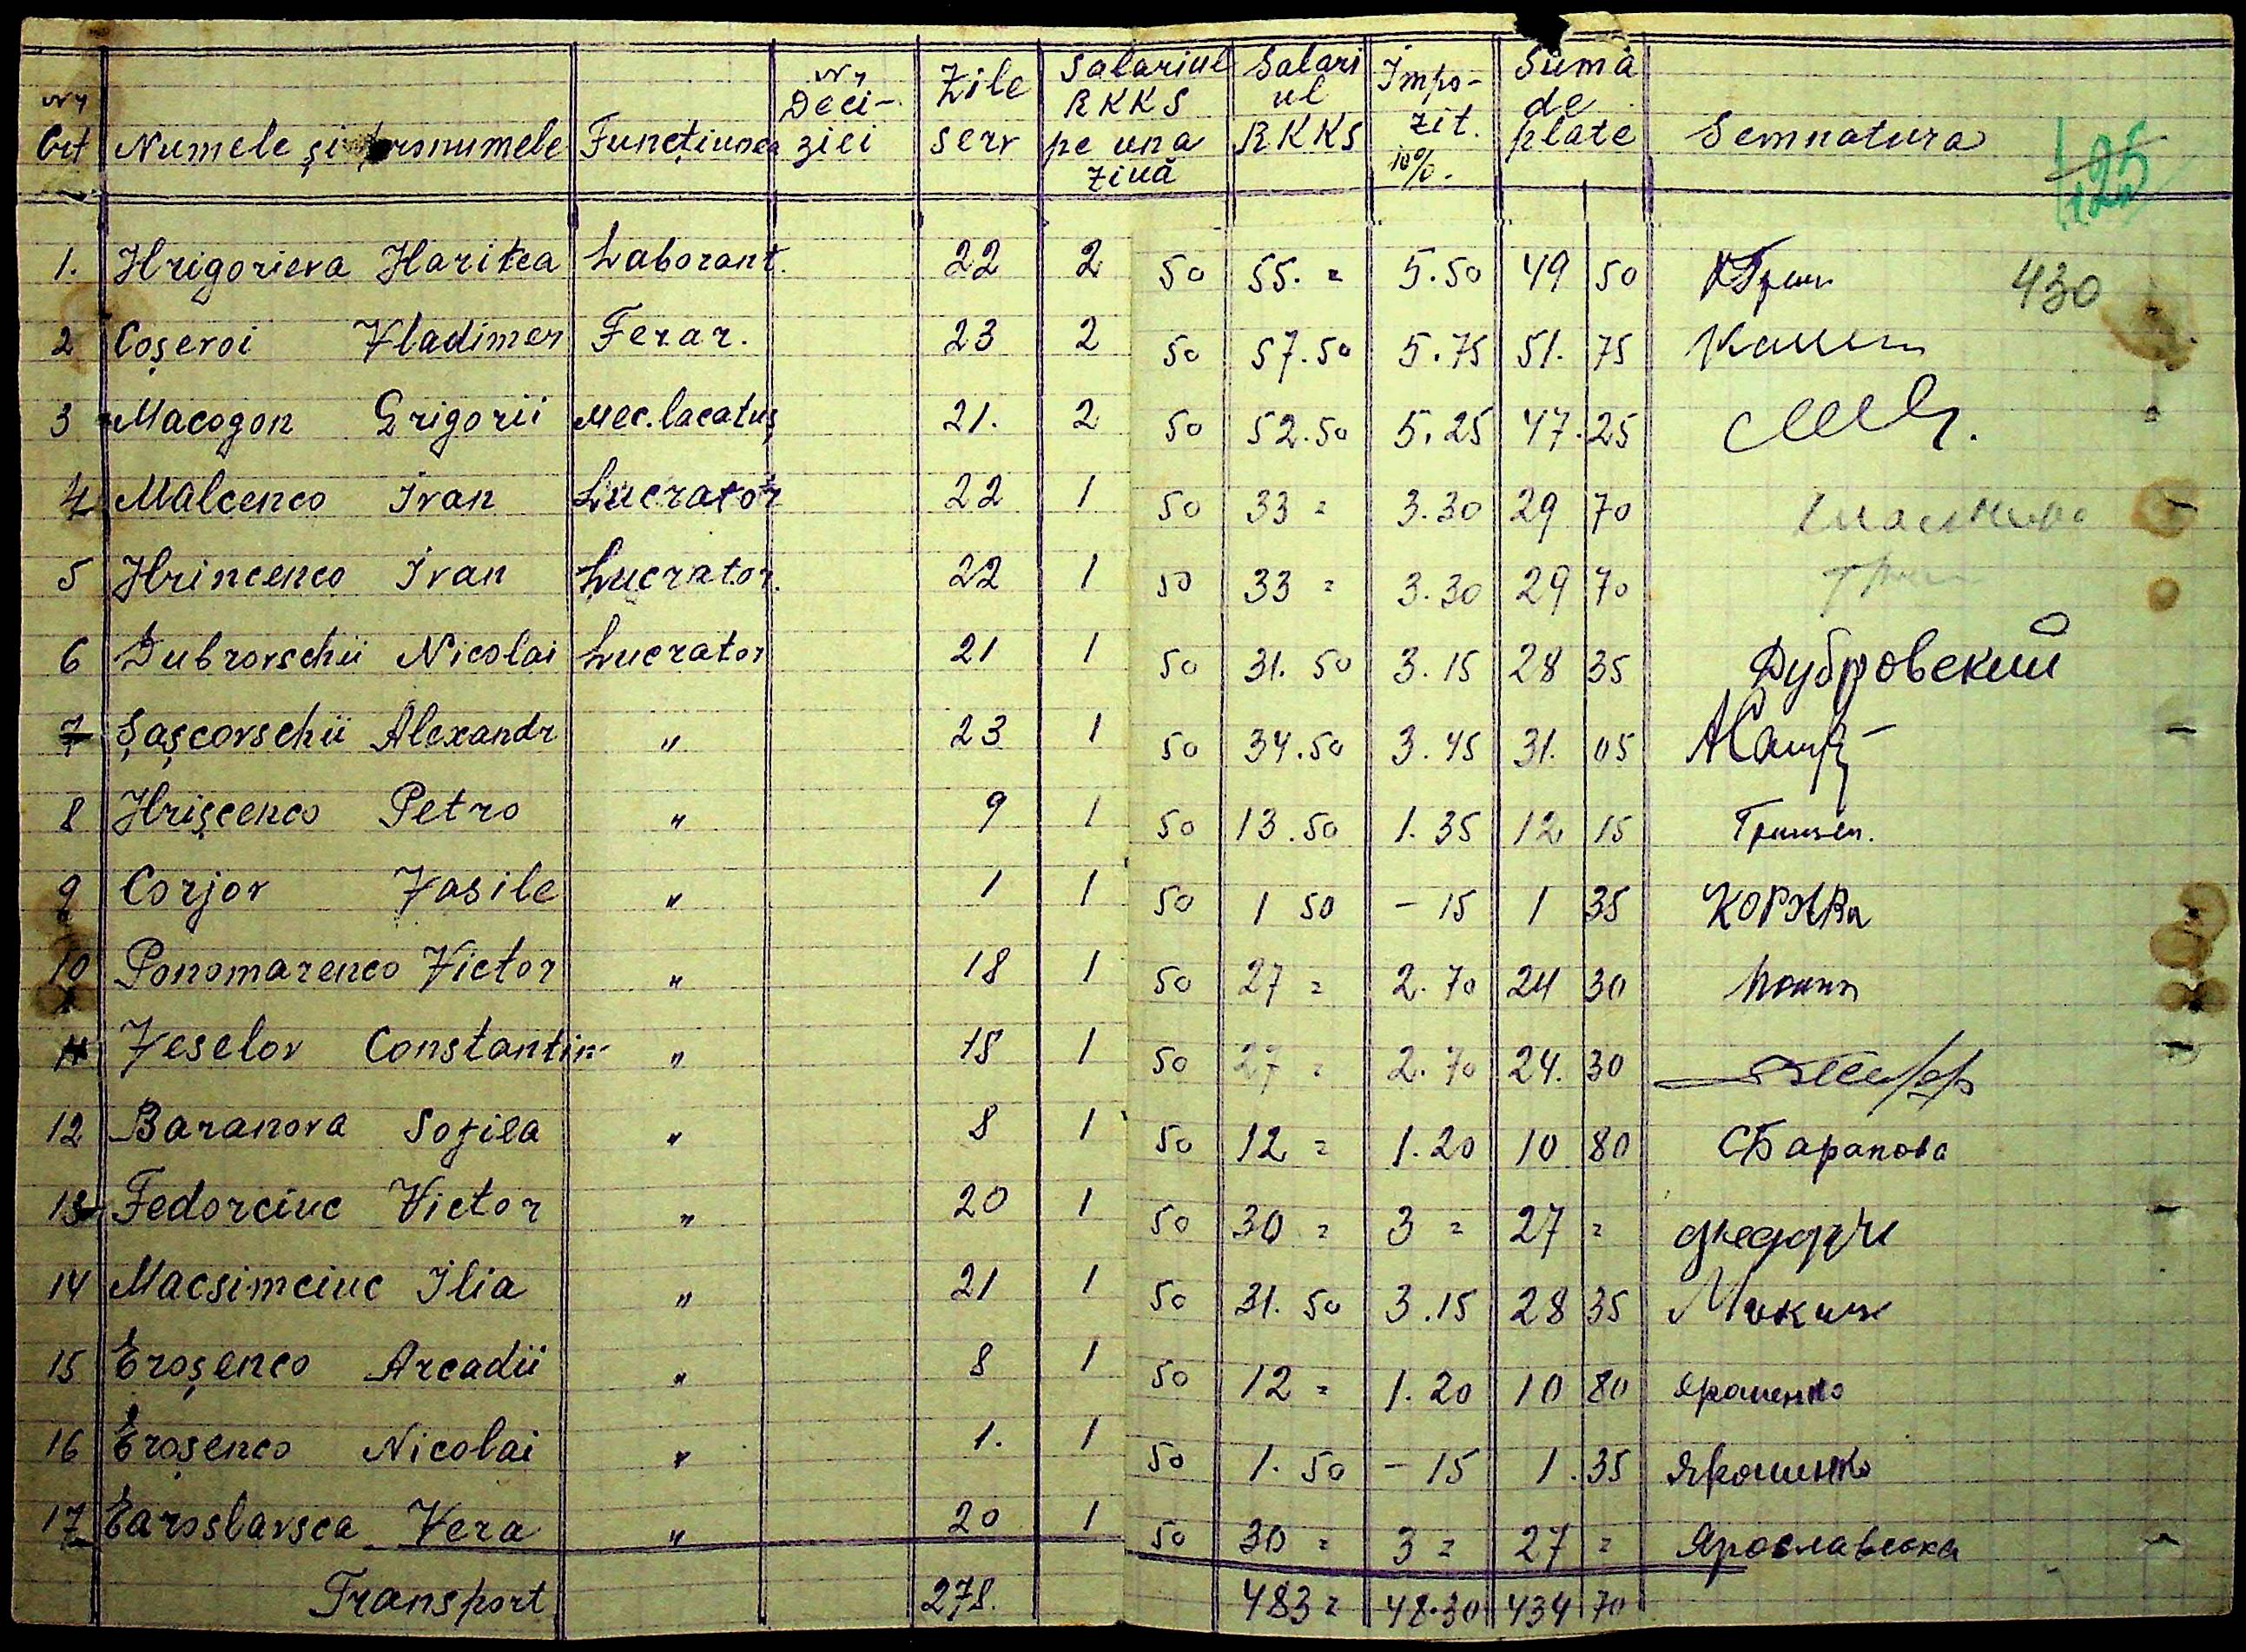 Nr Crt Numele și pronumele Funcțiunea Nr Deciziei Zile serv Salariul RKKS pe una ziuă Salariul RKKS Impozit. 10%. Sumă de plate Semnatura 125
1. Hrigorieva Haritea Laborant. 22 2 50 55. = 5.50 49 50 430
2 Coșevoi Vladimer Ferar. 23 2 50 57.50 5.75 51. 75
3 Macogon Grigorii Mec. lacatuș 21. 2 50 52.50 5.25 47.25
4 Malcenco Ivan Lucrator 22 1 50 33 = 3.30 29 70
5 Hrincenco Ivan Lucrator. 22 1 50 33 = 3.30 29 70
6 Dubrovschii Nicolai Lucrator 21 1 50 31. 50 3.15 28 35 Дубровский
7 Șașcovschii Alexandr " 23 1 50 34.50 3.45 31. 05
8 Hrișcenco Petro " 9 1 50 13.50 1.35 12 15
9 Corjov Vasile " 1 1 50 1 50 - 15 1 35
10 Ponomarenco Victor " 18 1 50 27 = 2.70 24 30
11 Veselov Constantin " 18 1 50 27 = 2.70 24. 30
12 Baranova Sofiea " 8 1 50 12 = 1.20 10 80 СБаранова
13 Fedorciuc Victor " 20 1 50 30 = 3 = 27 =
14 Macsimciuc Ilia " 21 1 50 31. 50 3.15 28 35
15 Eroșenco Arcadii " 8 1 50 12 = 1.20 10 80 Ярошенко
16 Eroșenco Nicolai " 1. 1 50 1. 50 - 15 1.35 Ярошинко
17 Earoslavsca Vera " 20 1 50 30 = 3 = 27 = Ярославська
Transport 278. 483 = 48.30 434 70